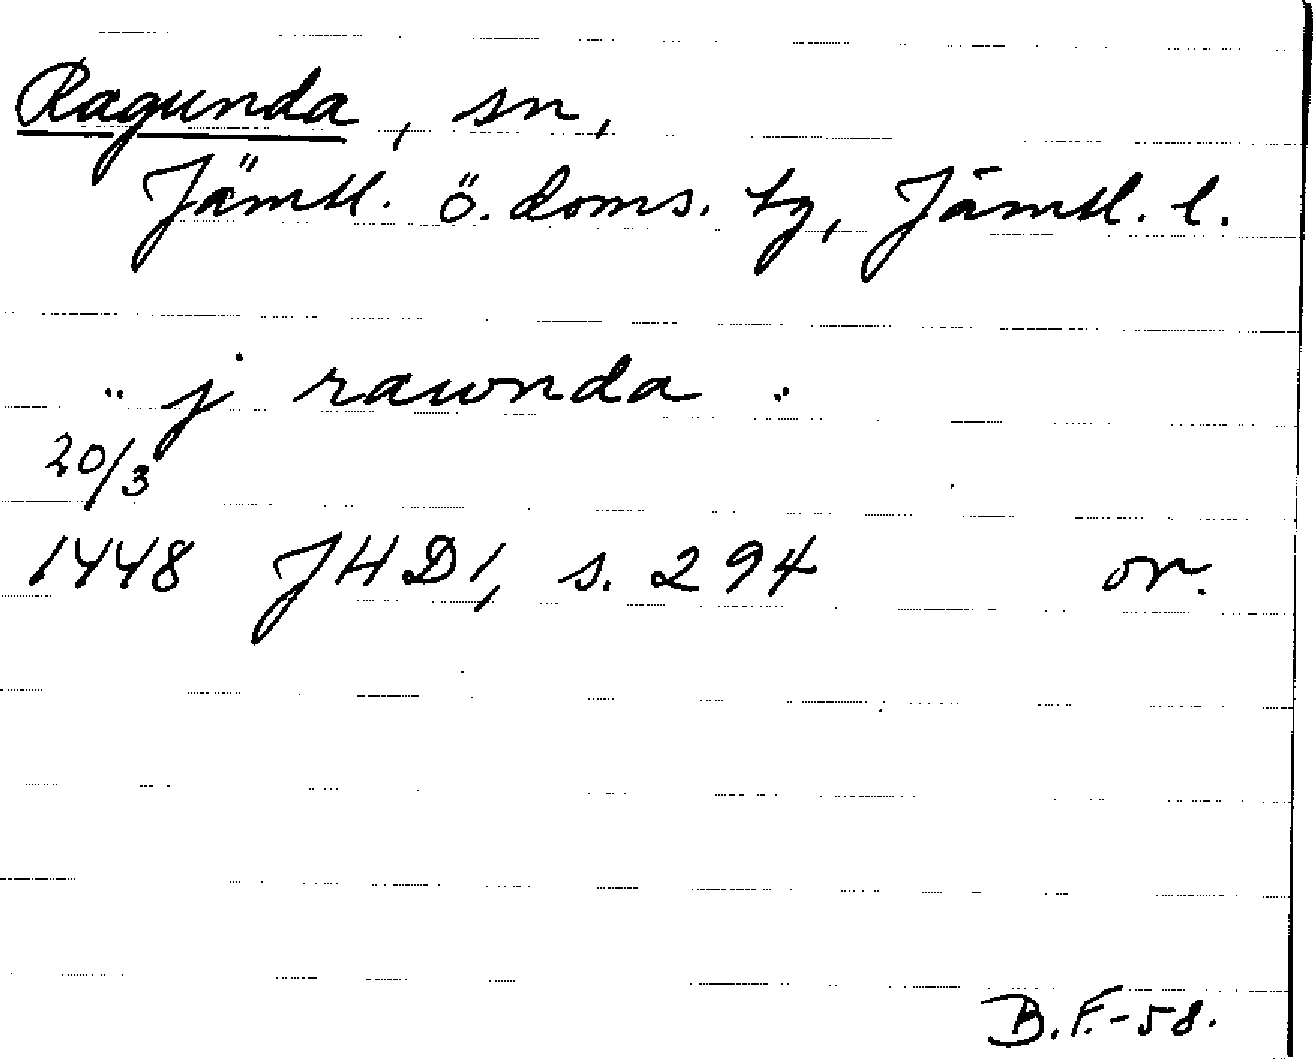 Ragunda, sn,
Jämtl. ö. doms. tg, Jämtl. l.
" j rawnda "
20/3
1448 JHD1, s. 294 or.
B.F.-58.